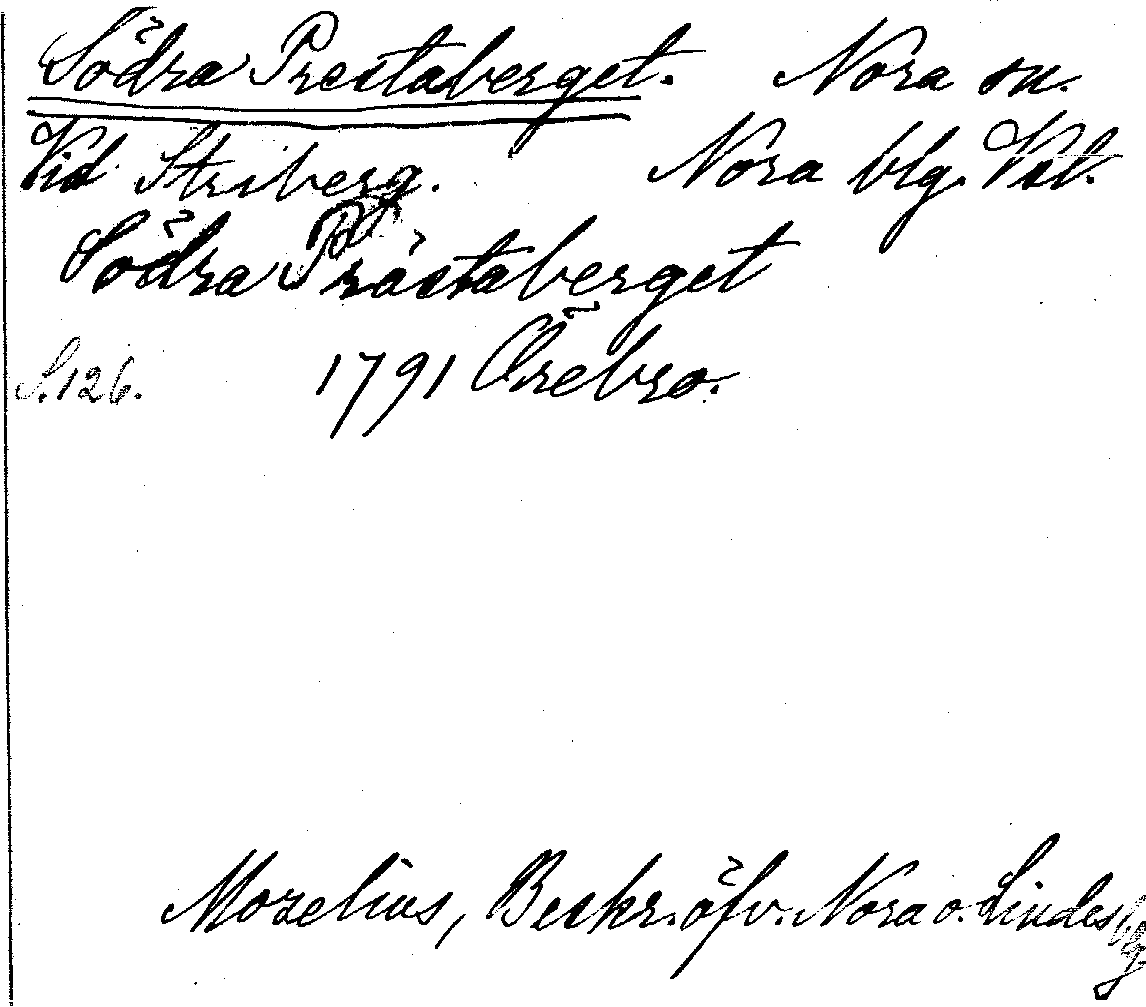 Södra Prestaberget. Nora sn.
Vid Striberg. Nora blg. Vstl.
Södra Prästaberget
S. 126. 1791 Örebro.
Morelius, Beskr. öfv. Nora o. Lindes blg.